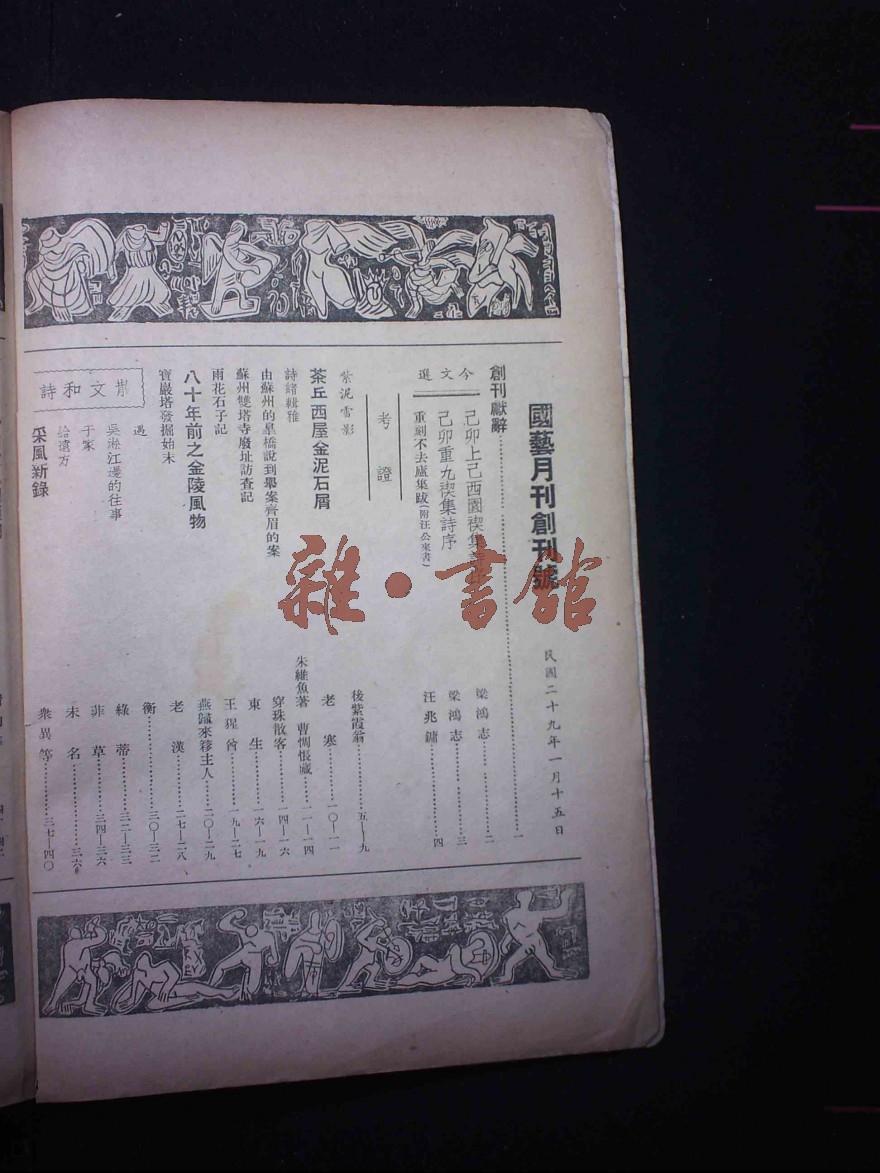 國藝月刊創刊號
民國二十九年一月十五日
創刊獻辭……一
今文選
己卯上巳西園禊集 梁鴻志……二
己卯重九禊集詩序 梁鴻志……三
重刻不去廬集跋(附汪公來書) 汪兆鏞……四
考證
紫泥雪影 後紫霞翁……五—九
茶丘西屋金泥石屑 老寒……一〇—一一
詩諸輯雅 朱維魚著 曹惆悵藏……一一—一四
由蘇州的臯橋說到舉案齊眉的案 穿珠散客……一四—一六
蘇州雙塔寺廢址訪查記 東生……一六—一九
雨花石子記 王猩酋……一九—二七
八十年前之金陵風物 燕歸來簃主人……二〇—二九
寶嚴塔發掘始末 老漢……二七—二八
散文和詩
遇 衡……三〇—三二
吳淞江邊的往事 綠蒂……三二—三三
于冢 菲草……三四—三六
給遠方 未名……三六
采風新錄 衆異等……三七—四〇
雜·書館